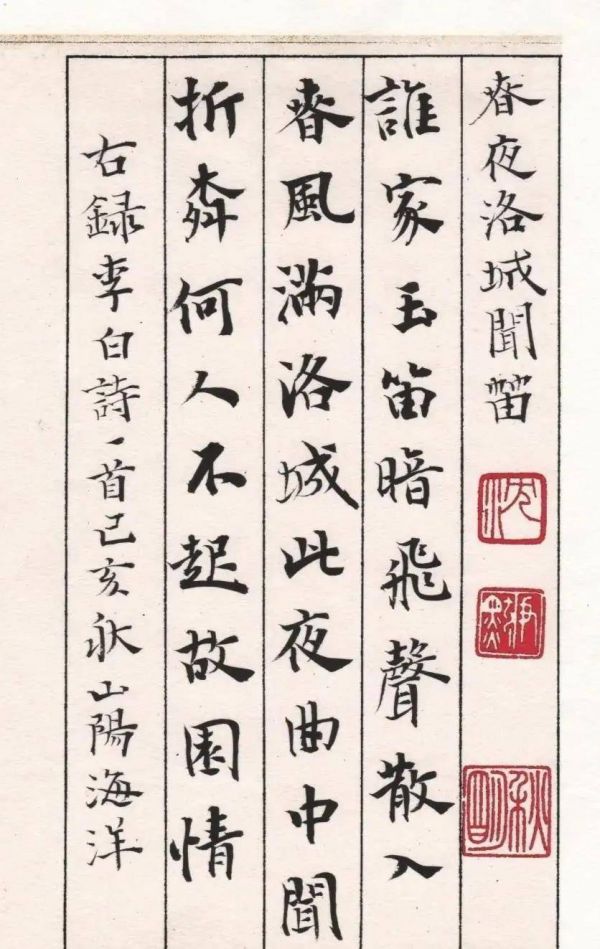 春夜洛城聞笛
誰家玉笛暗飛聲散入
春風滿洛城此夜曲中聞
折柳何人不起故園情
右録李白詩一首己亥秋山陽海洋